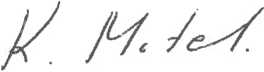 K. Mitel.